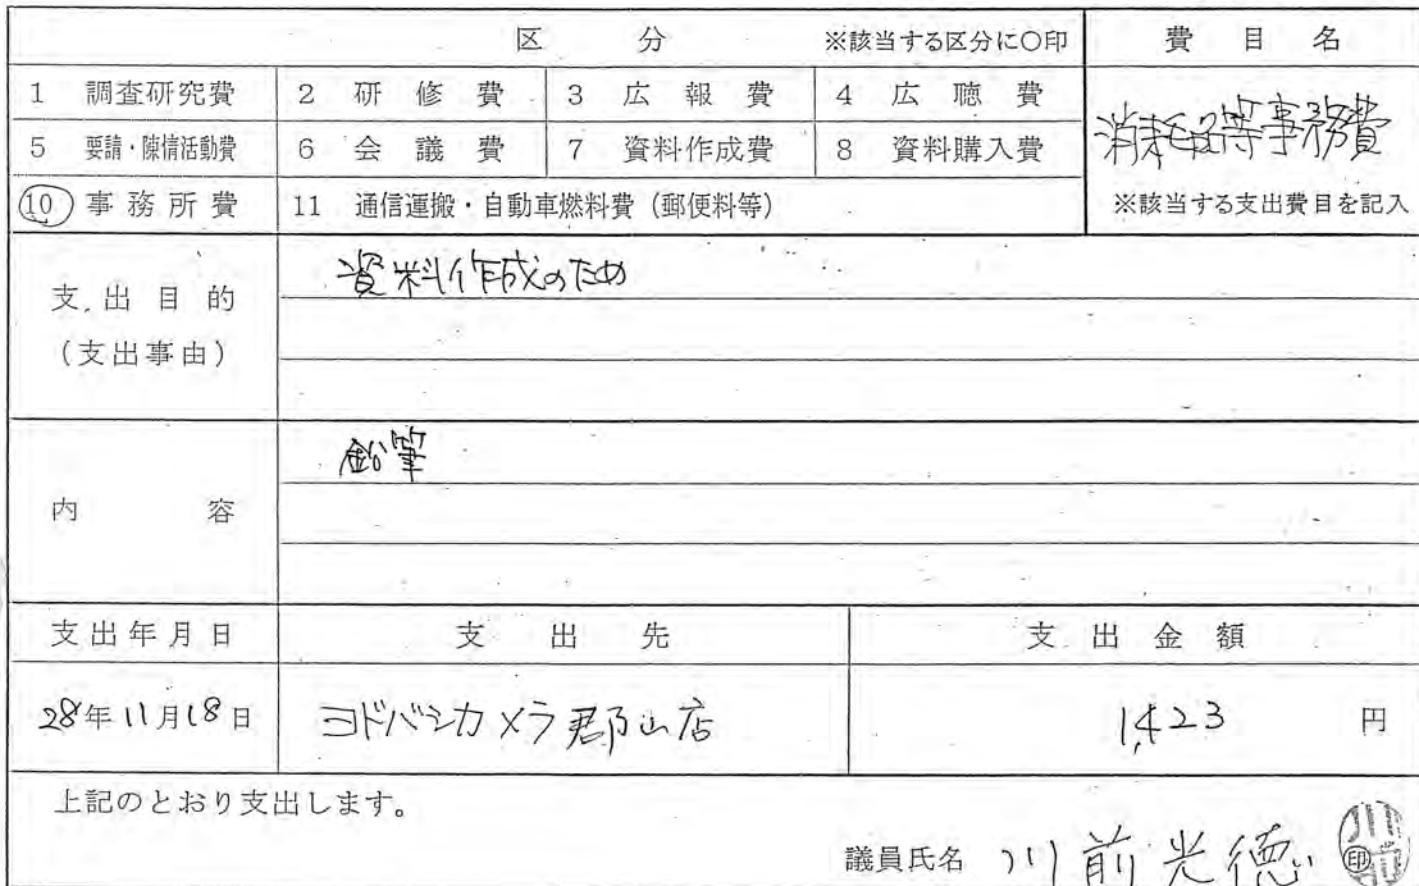 区 分 ※該当する区分に○印 費 目 名
1 調査研究費 2 研 修 費 3 広 報 費 4 広 聴 費
消耗品等事務費
5 要請・陳情活動費 6 会 議 費 7 資料作成費 8 資料購入費
⑩ 事 務 所 費 11 通信運搬・自動車燃料費 (郵便料等) ※該当する支出費目を記入
資料作成のため
支 出 目 的
(支出事由)
鉛筆
内 容
支出年月日 支 出 先 支 出 金 額
28年11月18日 ヨドバシカメラ郡山店 1,423 円
上記のとおり支出します。
議員氏名 川前光徳 印